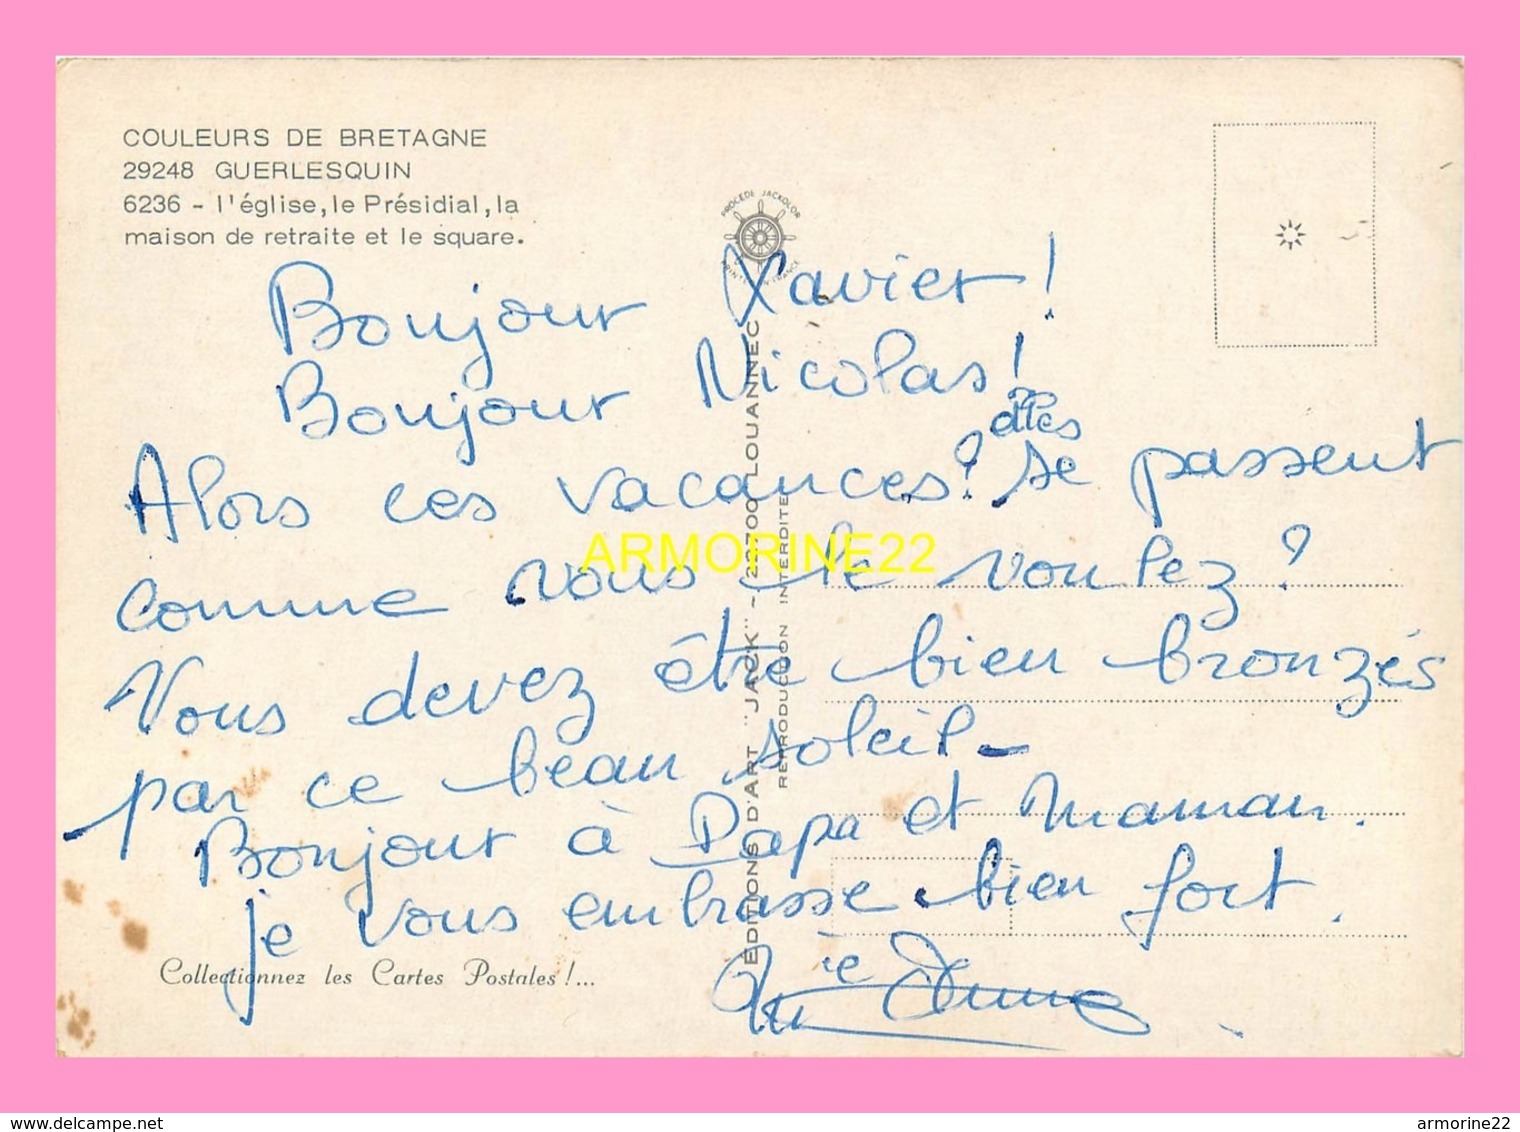 COULEURS DE BRETAGNE
29248 GUERLESQUIN
6236 - l'église, le Présidial, la
maison de retraite et le square.
PROCÉDÉ JACKOLOR
PRINTED IN FRANCE
Bonjour Xavier !
Bonjour Nicolas !
elles
Alors ces vacances ? se passent
comme vous le voulez ?
Vous devez être bien bronzés
par ce beau soleil -
Bonjour à Papa et Maman.
je vous embrasse bien fort.
Mie Anne
ÉDITIONS D'ART "JACK" - 22700 LOUANNEC
REPRODUCTION INTERDITE
Collectionnez les Cartes Postales !...
ARMORINE22
www.delcampe.net
armorine22